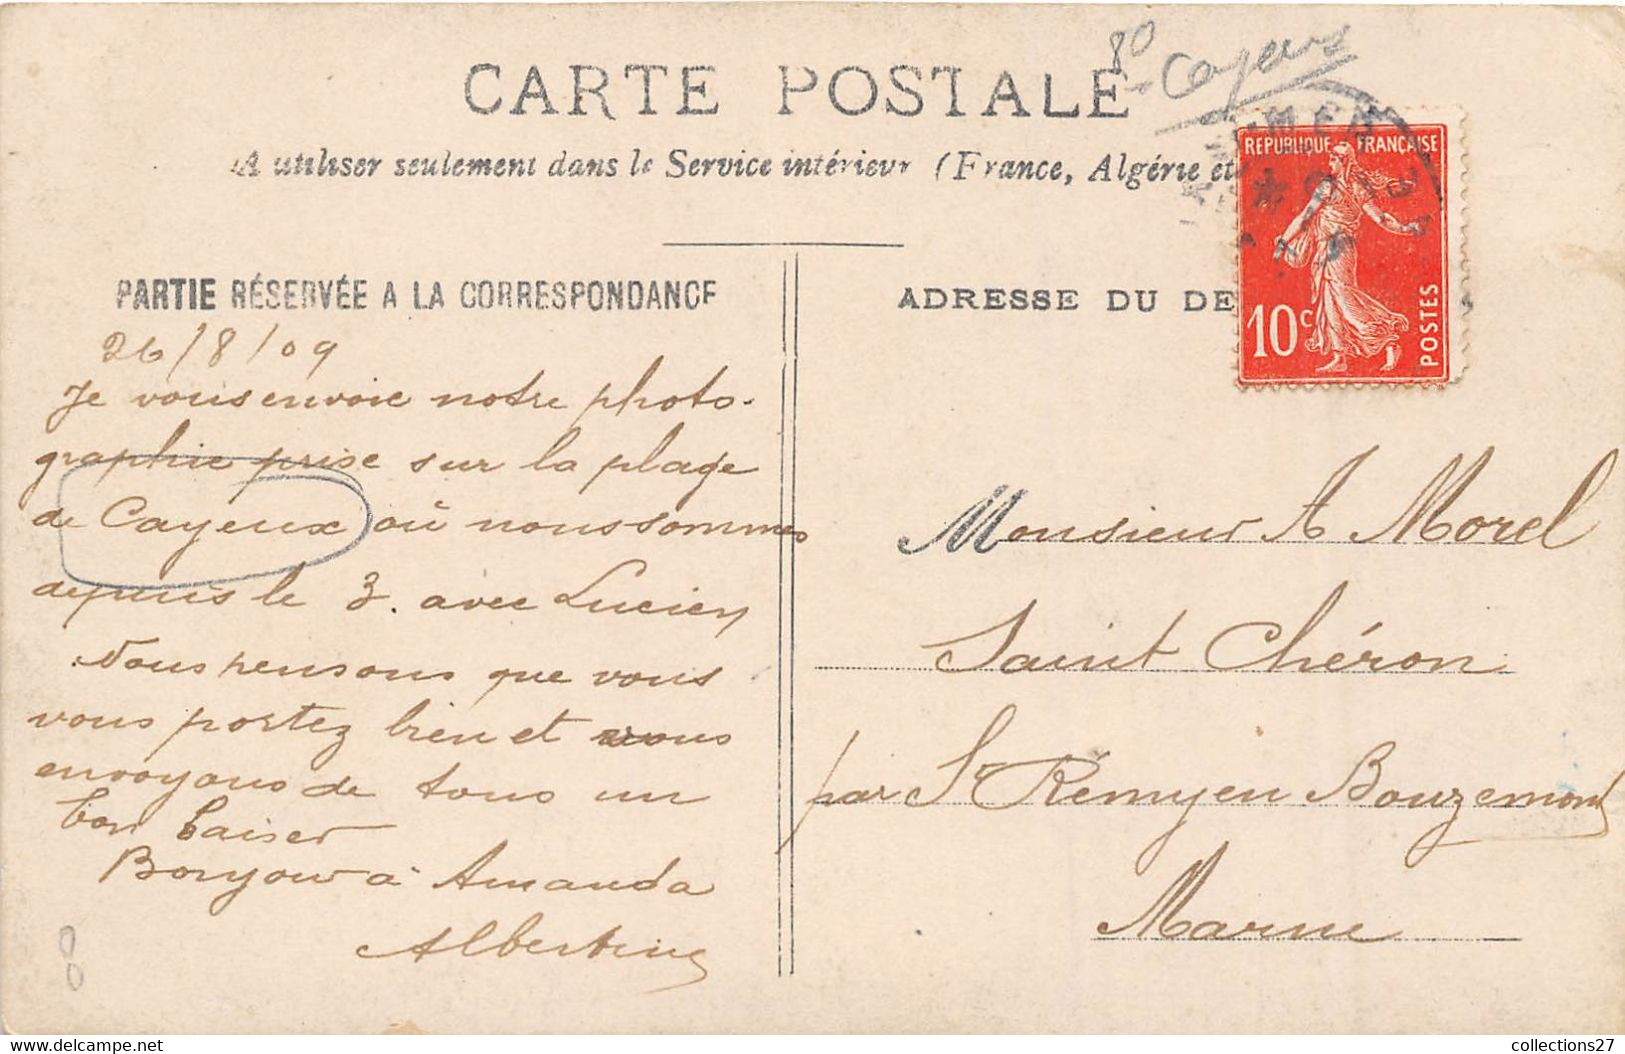 80
Cayeux
CARTE POSTALE
A utiliser seulement dans le Service intérieur (France, Algérie et
REPUBLIQUE FRANÇAISE
10c
POSTES
PARTIE RÉSERVÉE A LA CORRESPONDANCE
26/8/09
Je vous envoie notre photo-
graphie prise sur la plage
de Cayeux où nous sommes
depuis le 3. avec Lucien
Nous pensons que vous
vous portez bien et vous
envoyons de tous un
bon baiser
Bonjour à Amanda
Albertine
ADRESSE DU DE
Monsieur A Morel
Saint Chéron
par St Rémy en Bouzemont
Marne
collections27